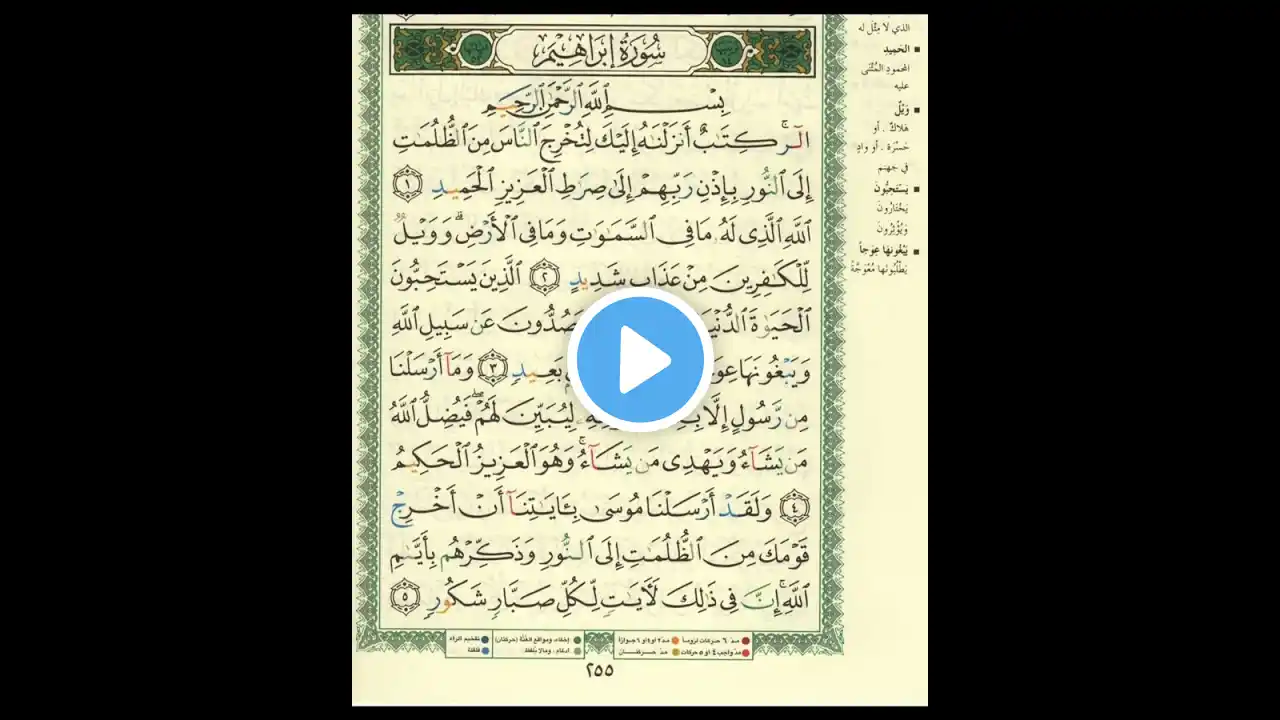 سُورَةُ إِبْرَاهِيمَ
بِسْمِ ٱللَّهِ ٱلرَّحْمَٰنِ ٱلرَّحِيمِ
الٓر ۚ كِتَٰبٌ أَنزَلْنَٰهُ إِلَيْكَ لِتُخْرِجَ ٱلنَّاسَ مِنَ ٱلظُّلُمَٰتِ
إِلَى ٱلنُّورِ بِإِذْنِ رَبِّهِمْ إِلَىٰ صِرَٰطِ ٱلْعَزِيزِ ٱلْحَمِيدِ ١
ٱللَّهِ ٱلَّذِى لَهُۥ مَا فِى ٱلسَّمَٰوَٰتِ وَمَا فِى ٱلْأَرْضِ ۗ وَوَيْلٌ
لِّلْكَٰفِرِينَ مِنْ عَذَابٍ شَدِيدٍ ٢ ٱلَّذِينَ يَسْتَحِبُّونَ
ٱلْحَيَوٰةَ ٱلدُّنْيَا صُدُّونَ عَن سَبِيلِ ٱللَّهِ
وَيَبْغُونَهَا بَعِيدٍ ٣ وَمَآ أَرْسَلْنَا
مِن رَّسُولٍ إِلَّا لِيُبَيِّنَ لَهُمْ ۖ فَيُضِلُّ ٱللَّهُ
مَن يَشَآءُ وَيَهْدِى مَن يَشَآءُ ۚ وَهُوَ ٱلْعَزِيزُ ٱلْحَكِيمُ
٤ وَلَقَدْ أَرْسَلْنَا مُوسَىٰ بِـَٔايَٰتِنَآ أَنْ أَخْرِجْ
قَوْمَكَ مِنَ ٱلظُّلُمَٰتِ إِلَى ٱلنُّورِ وَذَكِّرْهُم بِأَيَّىٰمِ
ٱللَّهِ ۚ إِنَّ فِى ذَٰلِكَ لَـَٔايَٰتٍ لِّكُلِّ صَبَّارٍ شَكُورٍ ٥
الذي لا مِثْلَ له
الحَمِيدِ
المَحمودِ المُثْنَى
عليه
وَيْلٌ
هَلاكٌ . أو
حَسْرَة . أو وادٍ
في جهنم
يَسْتَحِبُّونَ
يَخْتَارُونَ
وَيُؤْثِرُونَ
يَبْغُونَهَا عِوَجاً
يَطْلُبُونَها مُعْوَجَّةً
مدّ ٦ حركات لزوماً
مدّ ٢ أو ٤ أو ٦ جوازاً
مدّ واجب ٤ أو ٥ حركات
مدّ حركتان
إخفاء، ومواقع الغُنَّة (حركتان)
ادغام، وما لا يُلفَظ
تفخيم الراء
قلقلة
٢٥٥